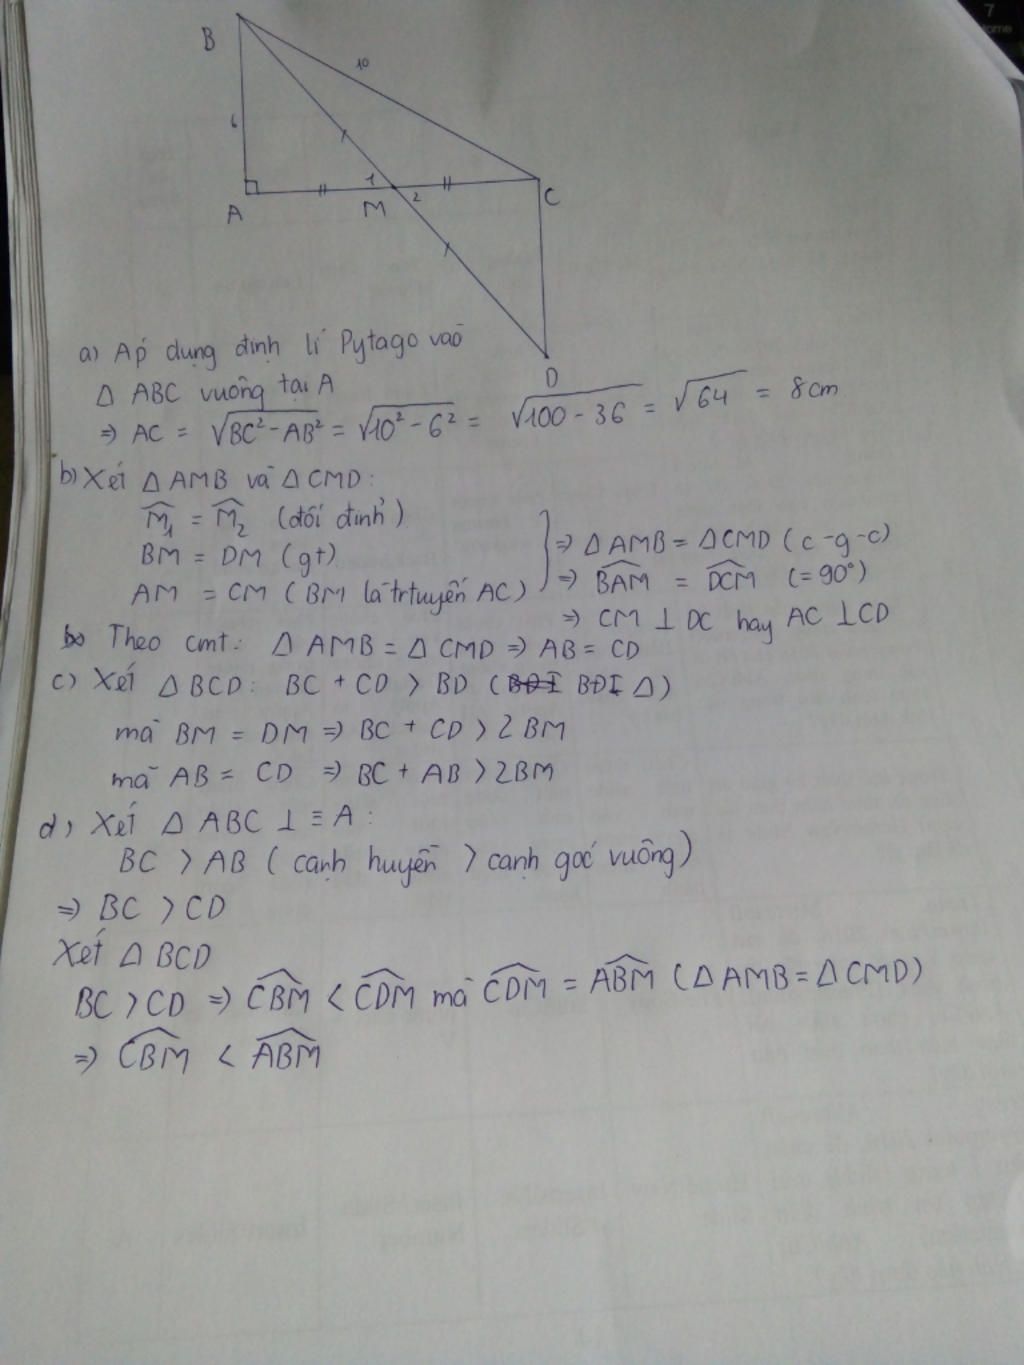 7
B
10
6
1
2
A
M
C
D
a) Áp dụng định lí Pytago vào
Δ ABC vuông tại A
⇒ AC = √BC² - AB² = √10² - 6² = √100 - 36 = √64 = 8cm
b) Xét Δ AMB và Δ CMD:
M̂₁ = M̂₂ (đối đỉnh)
BM = DM (gt)
AM = CM (BM là trtuyến AC)
⇒ Δ AMB = Δ CMD (c-g-c)
⇒ BAM = DCM (= 90°)
⇒ CM ⊥ DC hay AC ⊥ CD
Theo cmt: Δ AMB = Δ CMD ⇒ AB = CD
c) Xét Δ BCD: BC + CD > BD (BĐT BĐT Δ)
mà BM = DM ⇒ BC + CD > 2BM
mà AB = CD ⇒ BC + AB > 2BM
d) Xét Δ ABC ⊥ ≡ A:
BC > AB (cạnh huyền > cạnh góc vuông)
⇒ BC > CD
Xét Δ BCD
BC > CD ⇒ CBM < CDM mà CDM = ABM (Δ AMB = Δ CMD)
⇒ CBM < ABM